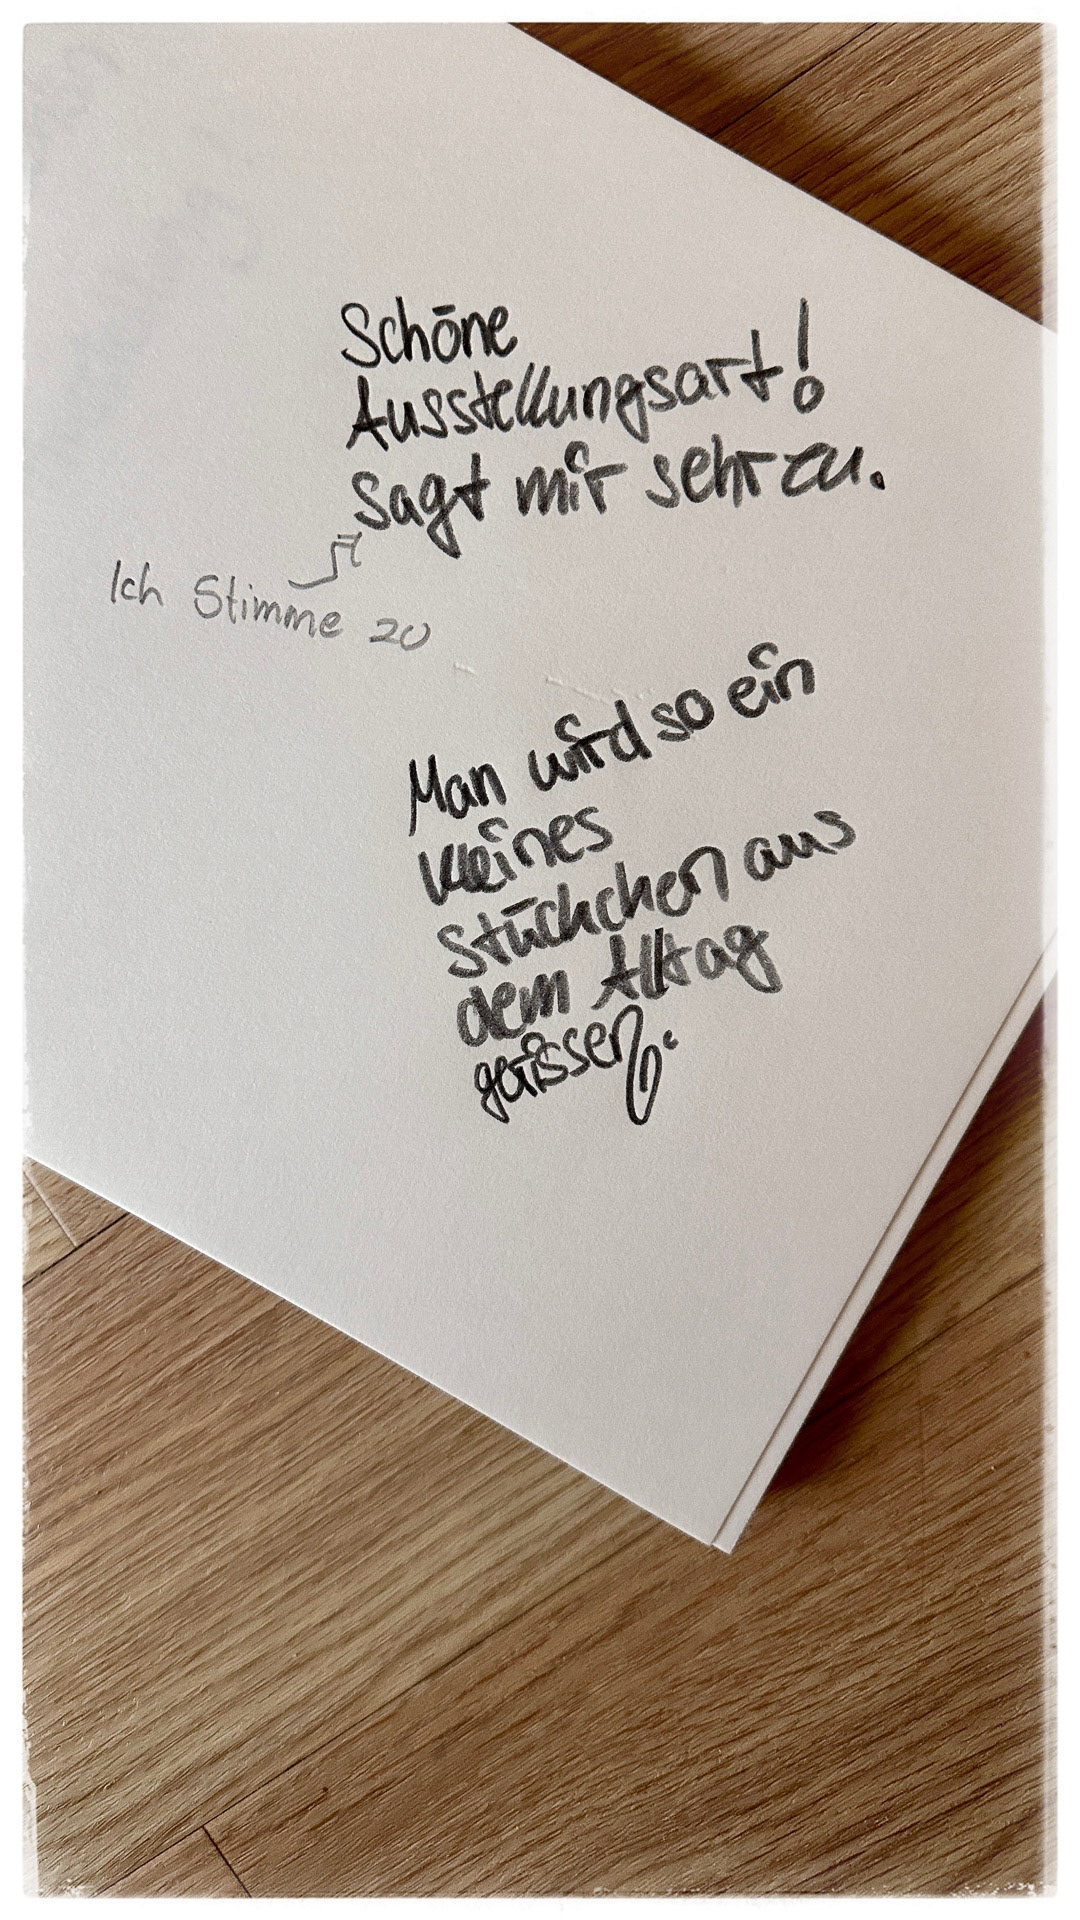 Schöne
Ausstellungsart!
Sagt mir sehr zu.
Ich Stimme zu
Man wird so ein
kleines
Stückchen aus
dem Alltag
gerissen.